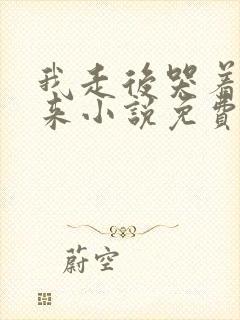 我走後哭着
来小說免費
蔚空